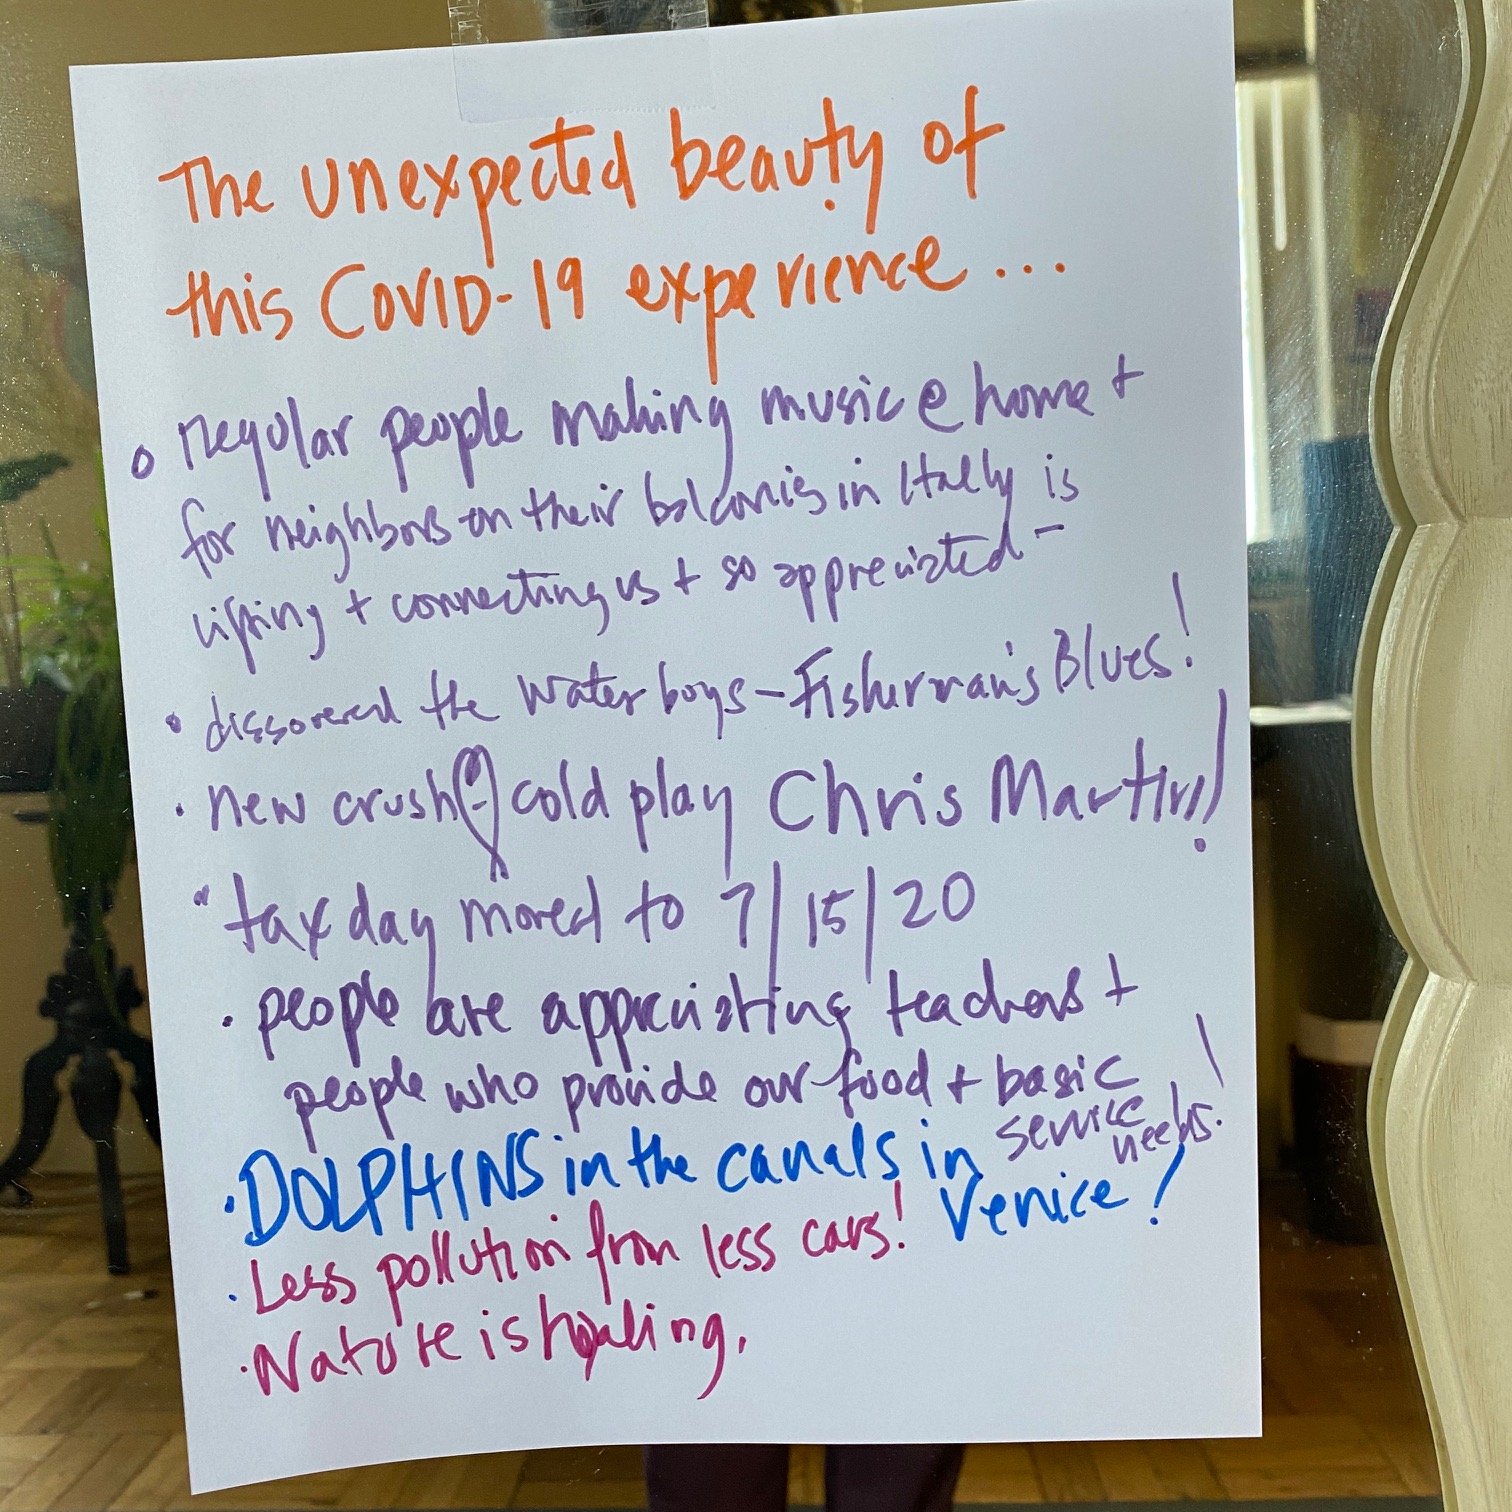 The unexpected beauty of
this COVID-19 experience...
regular people making music @ home +
for neighbors on their balconies in Itally is
lifting + connecting us + so appreciated -
• dissovered the Water boys - Fisherman's Blues!
• new crush cold play Chris Martin!
• tax day moved to 7/15/20
• people are appreciating teachers +
people who provide our food + basic
service needs!
• DOLPHINS in the canals in
Venice!
• Less pollution from less cars!
• Nature is healing.